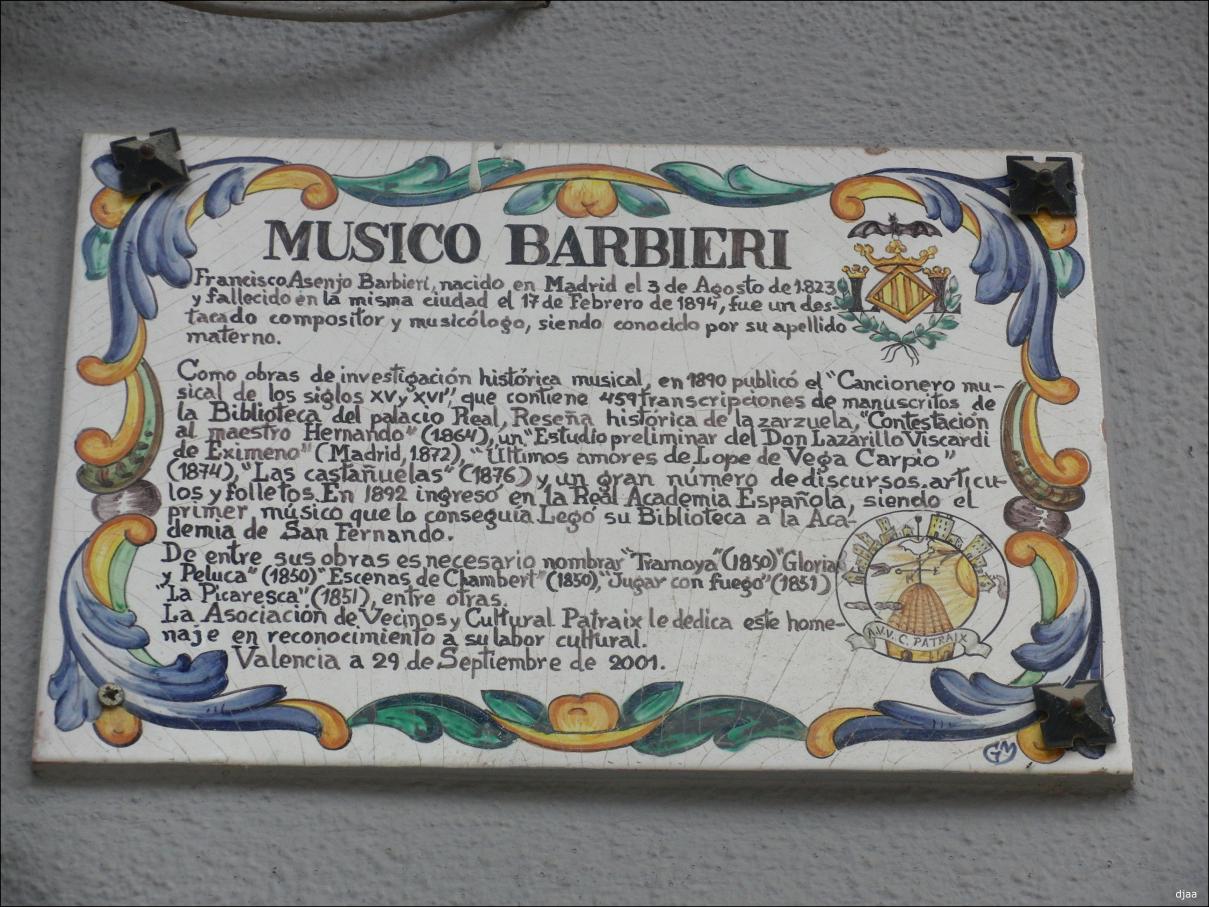 MUSICO BARBIERI
Francisco Asenjo Barbieri, nacido en Madrid el 3 de Agosto de 1.823
y fallecido en la misma ciudad el 17 de Febrero de 1894, fue un des-
tacado compositor y musicólogo, siendo conocido por su apellido
materno.
Como obras de investigación histórica musical, en 1890 publicó el "Cancionero mu-
sical de los siglos XV y XVI", que contiene 459 transcripciones de manuscritos de
la Biblioteca del palacio Real, Reseña histórica de la zarzuela, "Contestación
al maestro Hernando" (1864), un "Estudio preliminar del Don Lazarillo Viscardi
de Eximeno" (Madrid, 1.872), "Ultimos amores de Lope de Vega Carpio"
(1874), "Las castañuelas" (1876) y un gran número de discursos, artícu-
los y folletos. En 1892 ingresó en la Real Academia Española, siendo el
primer, músico que lo conseguía. Legó su Biblioteca a la Aca-
demia de San Fernando.
De entre sus obras es necesario nombrar "Tramoya" (1850) "Gloria
y Peluca" (1850) "Escenas de Chamberí" (1850), "Jugar con fuego" (1851)
"La Picaresca" (1851), entre otras.
La Asociación de Vecinos y Cultural Patraix le dedica este home-
naje en reconocimiento a su labor cultural.
Valencia a 29 de Septiembre de 2001.
L L
N E
A.V.V. C. PATRAIX
GM
djaa